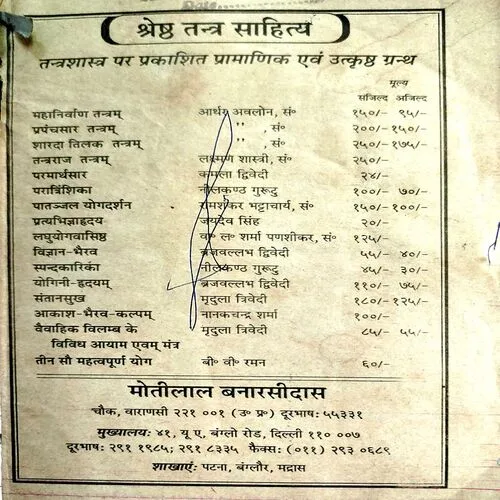 Date
श्रेष्ठ तन्त्र साहित्य
तन्त्रशास्त्र पर प्रकाशित प्रामाणिक एवं उत्कृष्ठ ग्रन्थ
मूल्य
सजिल्द अजिल्द
महानिर्वाण तन्त्रम् आर्थर अवलोन, सं॰ १५०/– ९५/–
प्रपंचसार तन्त्रम् " " , सं॰ २००/– १५०/–
शारदा तिलक तन्त्रम् " " , सं॰ २५०/– १७५/–
तन्त्रराज तन्त्रम् लक्ष्मण शास्त्री, सं॰ २५०/–
परमार्थसार कमला द्विवेदी २४/–
परात्रिंशिका नीलकण्ठ गुरूटु १००/– ७०/–
पातञ्जल योगदर्शन रामशंकर भट्टाचार्य, सं॰ १५०/– १००/–
प्रत्यभिज्ञाहृदय जयदेव सिंह २०/–
लघुयोगवासिष्ठ वा॰ ल॰ शर्मा पणशीकर, सं॰ १२५/–
विज्ञान-भैरव ब्रजवल्लभ द्विवेदी ५५/– ४०/–
स्पन्दकारिका नीलकण्ठ गुरूटु ४५/– ३०/–
योगिनी-हृदयम् ब्रजवल्लभ द्विवेदी ११०/– ७५/–
संतानसुख मृदुला त्रिवेदी १८०/– १२५/–
आकाश-भैरव-कल्पम् नानकचन्द्र शर्मा १००/–
वैवाहिक विलम्ब के मृदुला त्रिवेदी ८५/– ५५/–
विविध आयाम एवम् मंत्र
तीन सौ महत्वपूर्ण योग बी॰ वी॰ रमन ६०/–
मोतीलाल बनारसीदास
चौक, वाराणसी २२१ ००१ (उ॰ प्र॰) दूरभाष: ५५३३१
मुख्यालय: ४१, यू ए, बंग्लो रोड, दिल्ली ११० ००७
दूरभाष: २९१ १९८५; २९१ ८३३५ फैक्स: (०११) २९३ ०६८९
शाखाएं: पटना, बंग्लौर, मद्रास